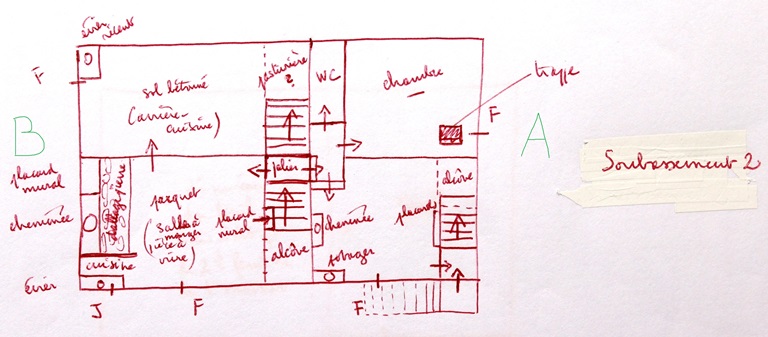 évier récent
F
sol bétonné
(arrière-
cuisine)
pasturière
?
WC
chambre
trappe
F
B
A
Soubassement 2
placard
mural
cheminée
dallage pierre
parquet
(salle à
manger
pièce à
vivre)
palier
placard
mural
cheminée
placards
alcôve
alcôve
potager
cuisine
Évier
J
F
F